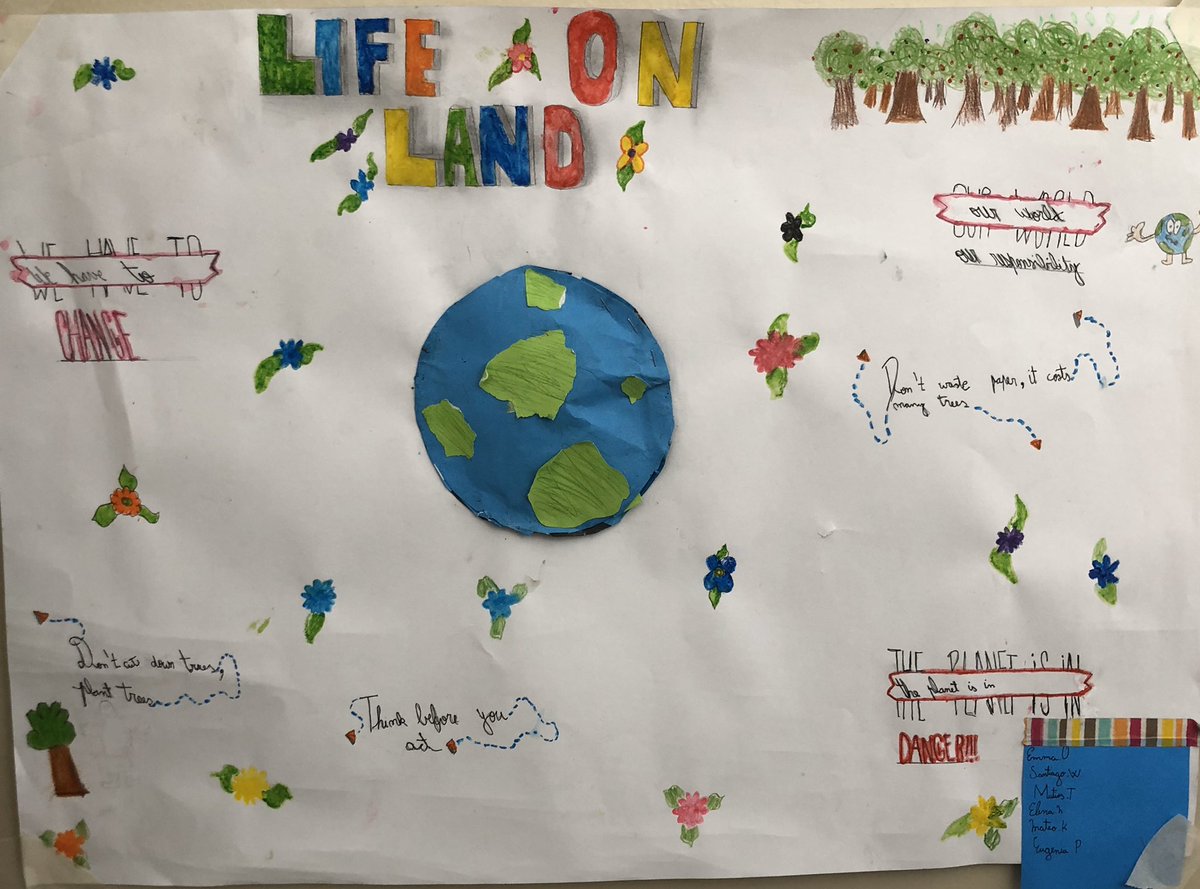 LIFE ON
LAND
OUR WORLD
our world
OUR WORLD
our reponsibility
WE HAVE TO
we have to
WE HAVE TO
CHANGE
Don't waste paper, it costs
many trees
Don't cut down trees,
plant trees
Think before you
act
THE PLANET IS IN
the planet is in
THE PLANET IS IN
DANGER!!!
Emma O
Santiago W
Matias J
Elena
Mateo K
Eugenia P